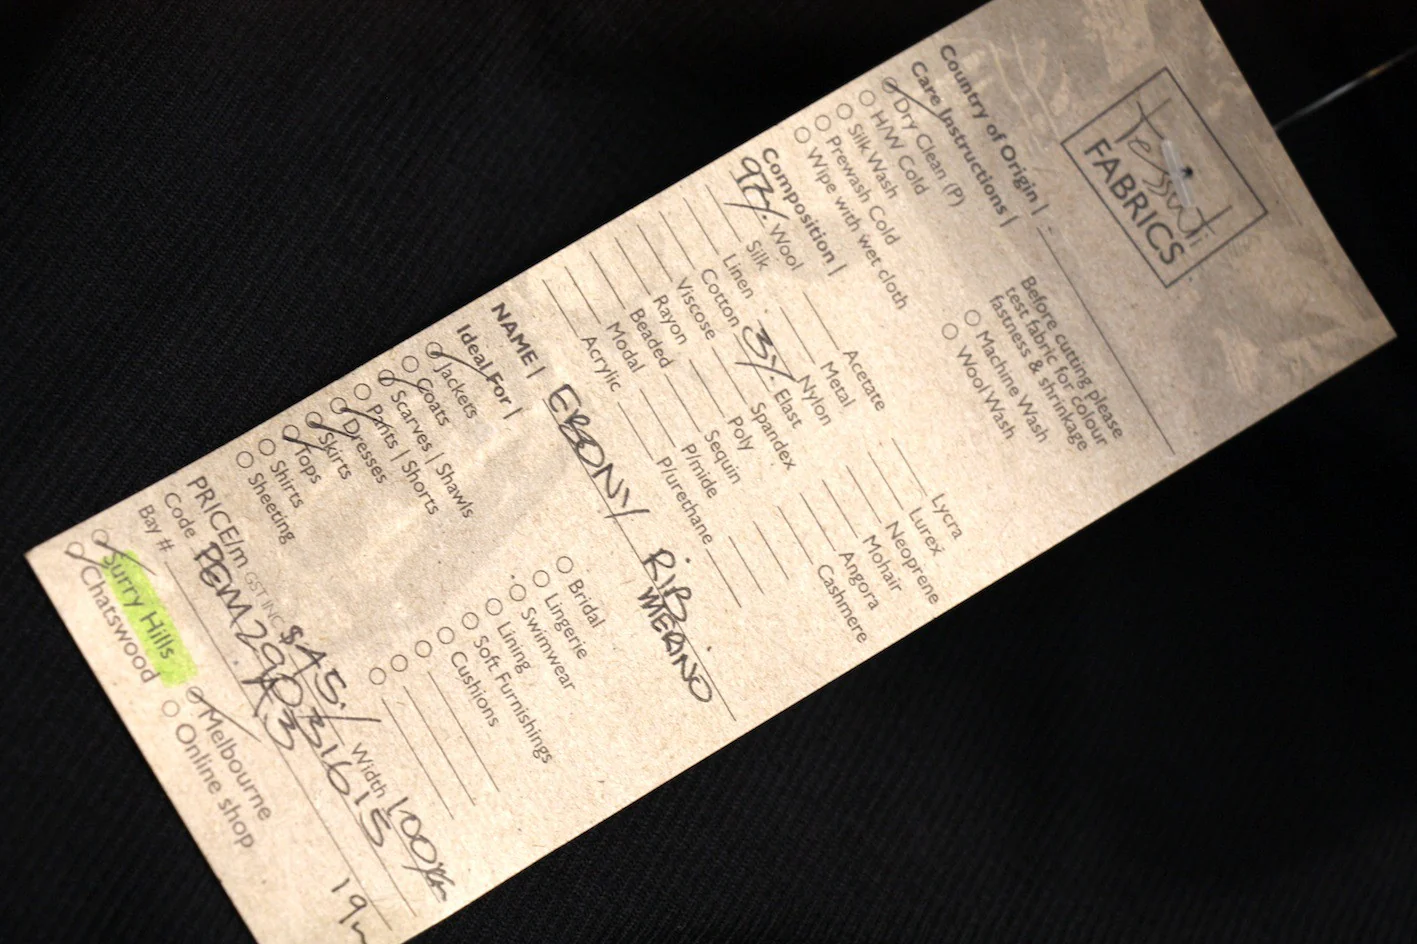 Tessuti
FABRICS
Country of Origin |
Care Instructions |
Dry Clean (P)
H/W Cold
Silk Wash
Prewash Cold
Wipe with wet cloth
Before cutting please
test fabric for colour
fastness & shrinkage
Machine Wash
Wool Wash
Composition |
97% Wool
Silk
Linen
Cotton
Viscose
Rayon
Beaded
Modal
Acrylic
Acetate
Metal
Nylon
3% Elast
Spandex
Poly
Sequin
P/mide
P/urethane
Lycra
Lurex
Neoprene
Mohair
Angora
Cashmere
NAME | EBONY RIB MERINO
Ideal For |
Jackets
Coats
Scarves | Shawls
Pants | Shorts
Dresses
Skirts
Tops
Shirts
Sheeting
Bridal
Lingerie
Swimwear
Lining
Soft Furnishings
Cushions
PRICE/m GST INC $45./ Width
Code
Bay # R3
Surry Hills
Chatswood
Melbourne
Online shop